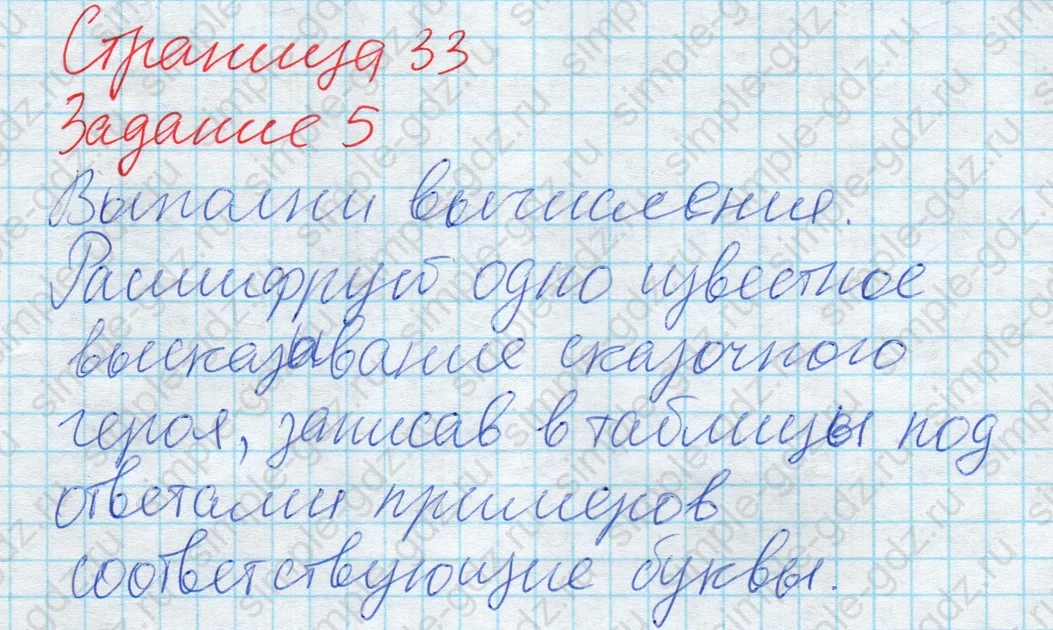 Страница 33
Задание 5
Выполни вычисления.
Расшифруй одно известное
высказывание сказочного
героя, записав в таблицы под
ответами примеров
соответствующие буквы.